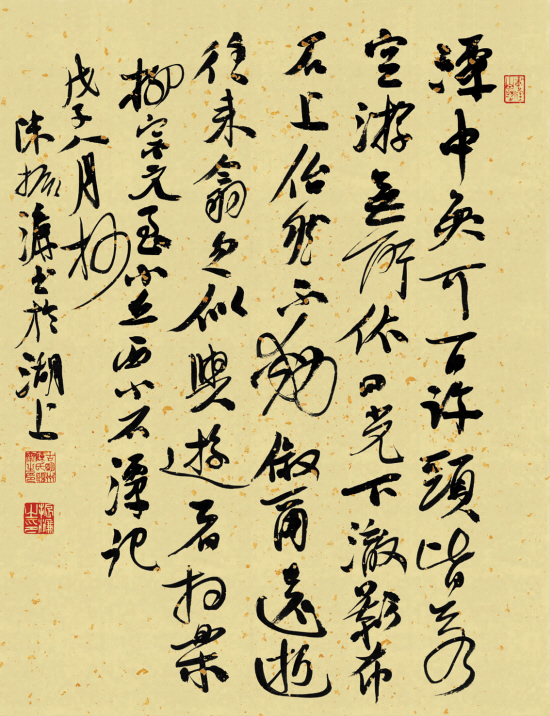 潭中魚可百許頭皆若
空游無所依日光下澈影布
石上佁然不動俶爾遠逝
往來翕忽似與遊者相樂
柳宗元至小丘西小石潭記
戊子八月杪
陳振濂書於湖上